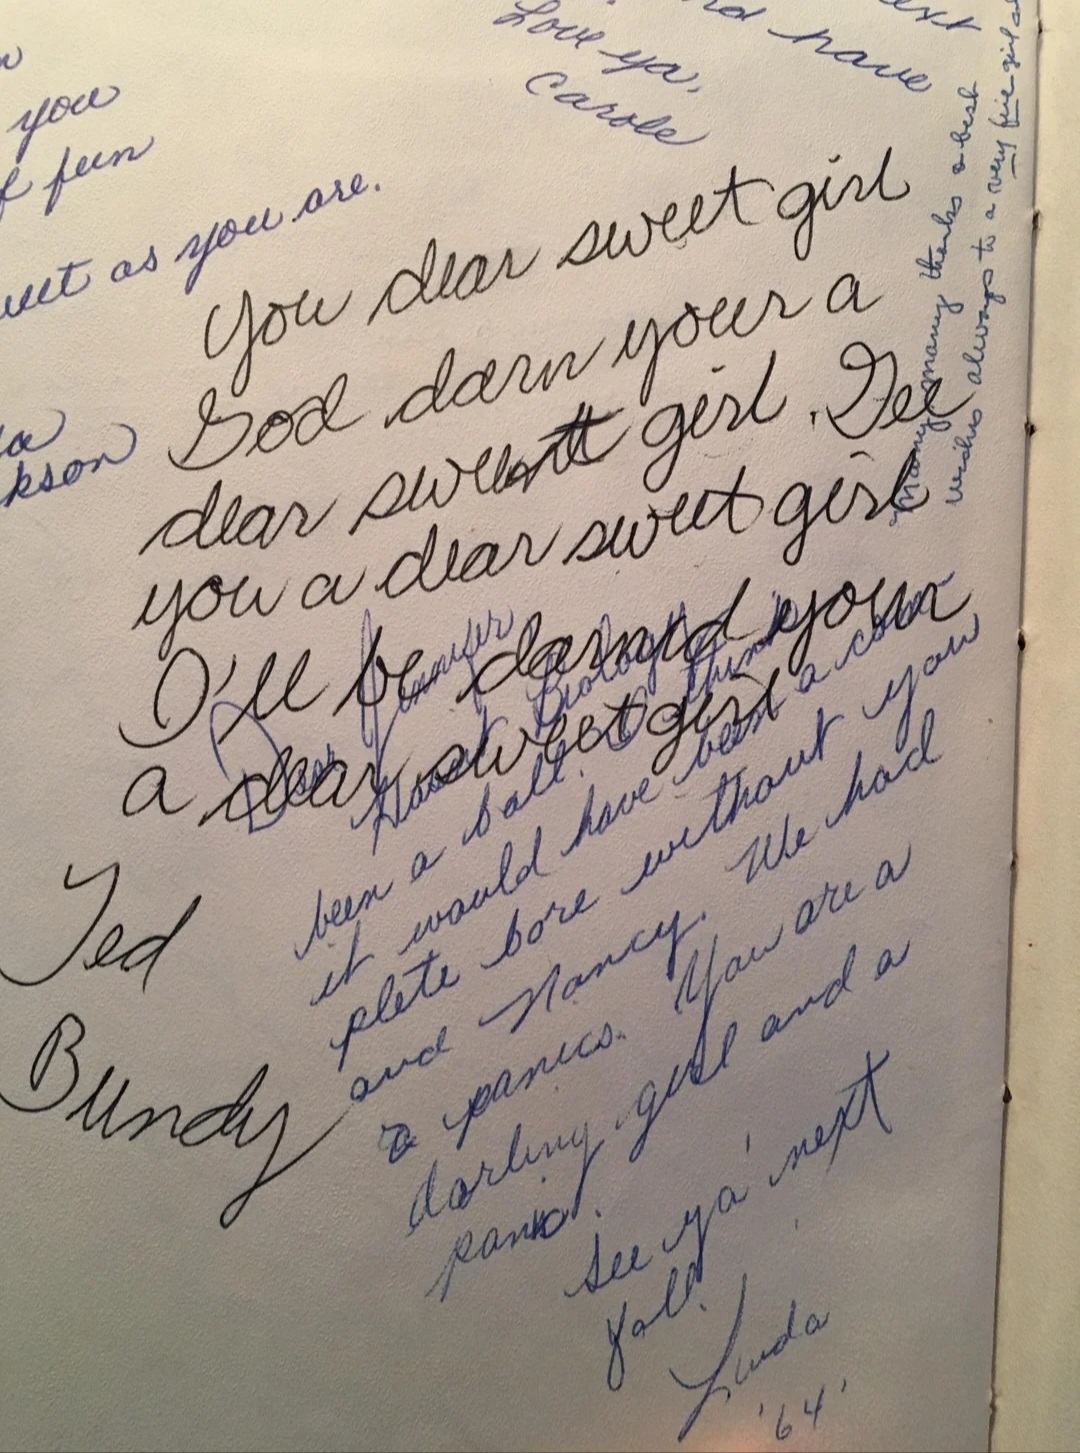 you
fun
as you are.
kson
Love ya,
Carole
have
many many thanks & best
wishes always to a very fine girl
You dear sweet girl
God darn your a
dear sweet girl. Gee
you a dear sweet girl
I'll be darned your
a dear sweet girl
Ted
Bundy
Dear Jennifer
Biology
been a ball. I think
it would have been a com-
plete bore without you
and Nancy. We had
a panics. You are a
darling girl and a
panic.
See ya' next
fall.
Linda
'64'